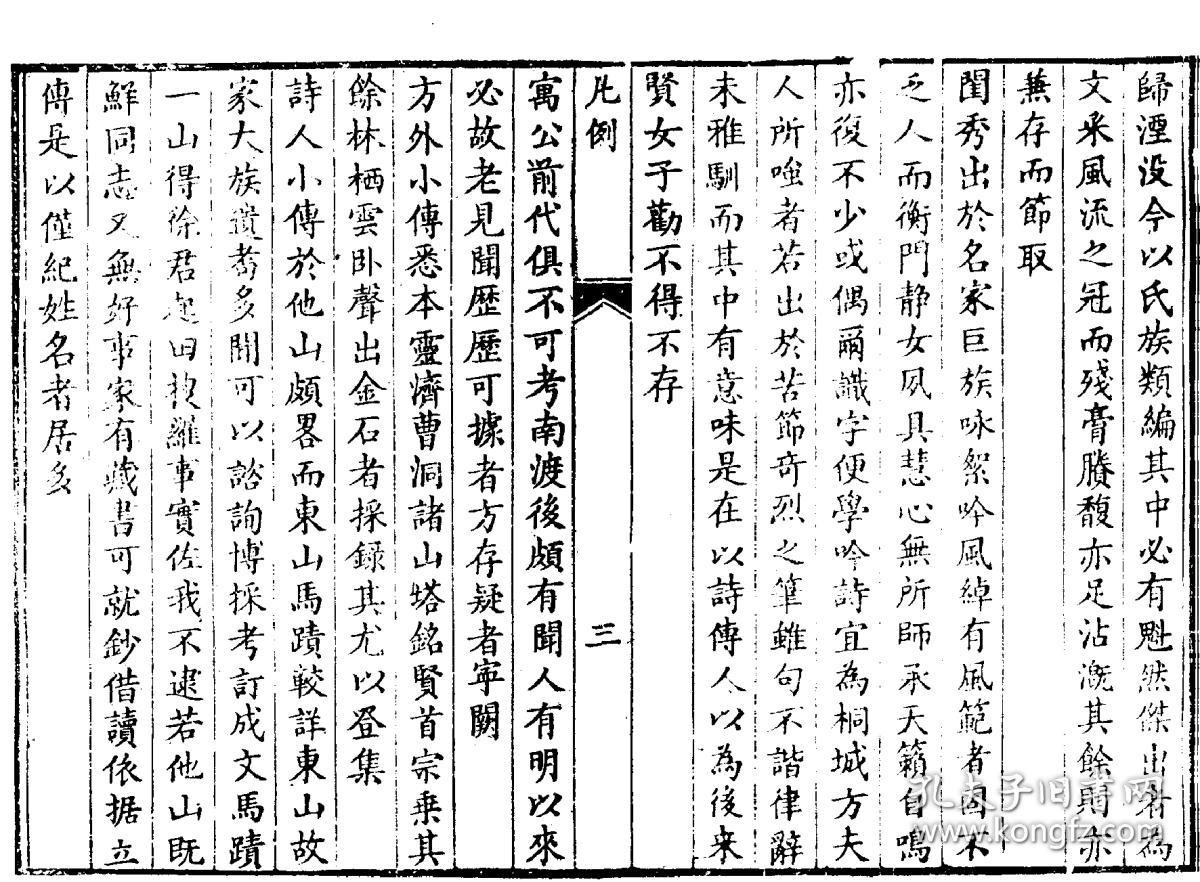 歸湮没今以氏族類編其中必有魁然傑出者為
文采風流之冠而殘膏賸馥亦足沾溉其餘則亦
蒹存而節取
閨秀出於名家巨族咏絮吟風綽有風範者固不
乏人而衡門静女夙具慧心無所師承天籟自鳴
亦復不少或偶爾識字便學吟詩宜為桐城方夫
人所嗤者若出於苦節奇烈之筆雖句不諧律辭
未雅馴而其中有意味是在以詩傳人以為後来
賢女子勸不得不存
凡例
三
寓公前代俱不可考南渡後頗有聞人有明以來
必故老見聞歷歷可據者方存疑者寧闕
方外小傳悉本靈濟曹洞諸山塔銘賢首宗乗其
餘林栖雲卧聲出金石者採録其尤以登集
詩人小傳於他山頗畧而東山馬蹟較詳東山故
家大族遺耆多聞可以諮詢博採考訂成文馬蹟
一山得徐君 羅事實佐我不逮若他山既
鮮同志又無好事家有藏書可就鈔借讀依据立
傳是以僅紀姓名者居多
孔夫子旧书网
www.kongfz.com